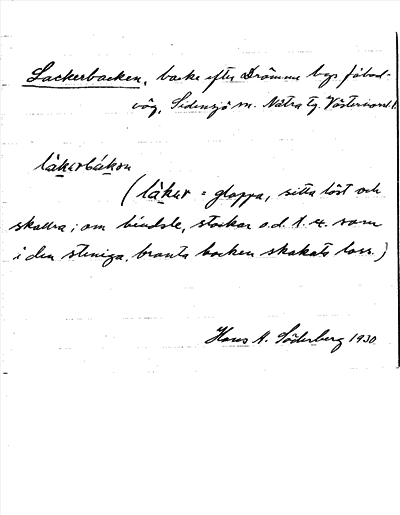 Lackerbacken, backe efter Drömme bys fäbod-
väg, Sidensjö sn. Nätra tg. Västernorrl. l.
läkerbákən
(läker = glappa, sitta löst och
skallra; om bindsle, stockar o.d. t. ex. som
i den steniga, branta backen skakats loss.)
Hans A. Söderberg 1930